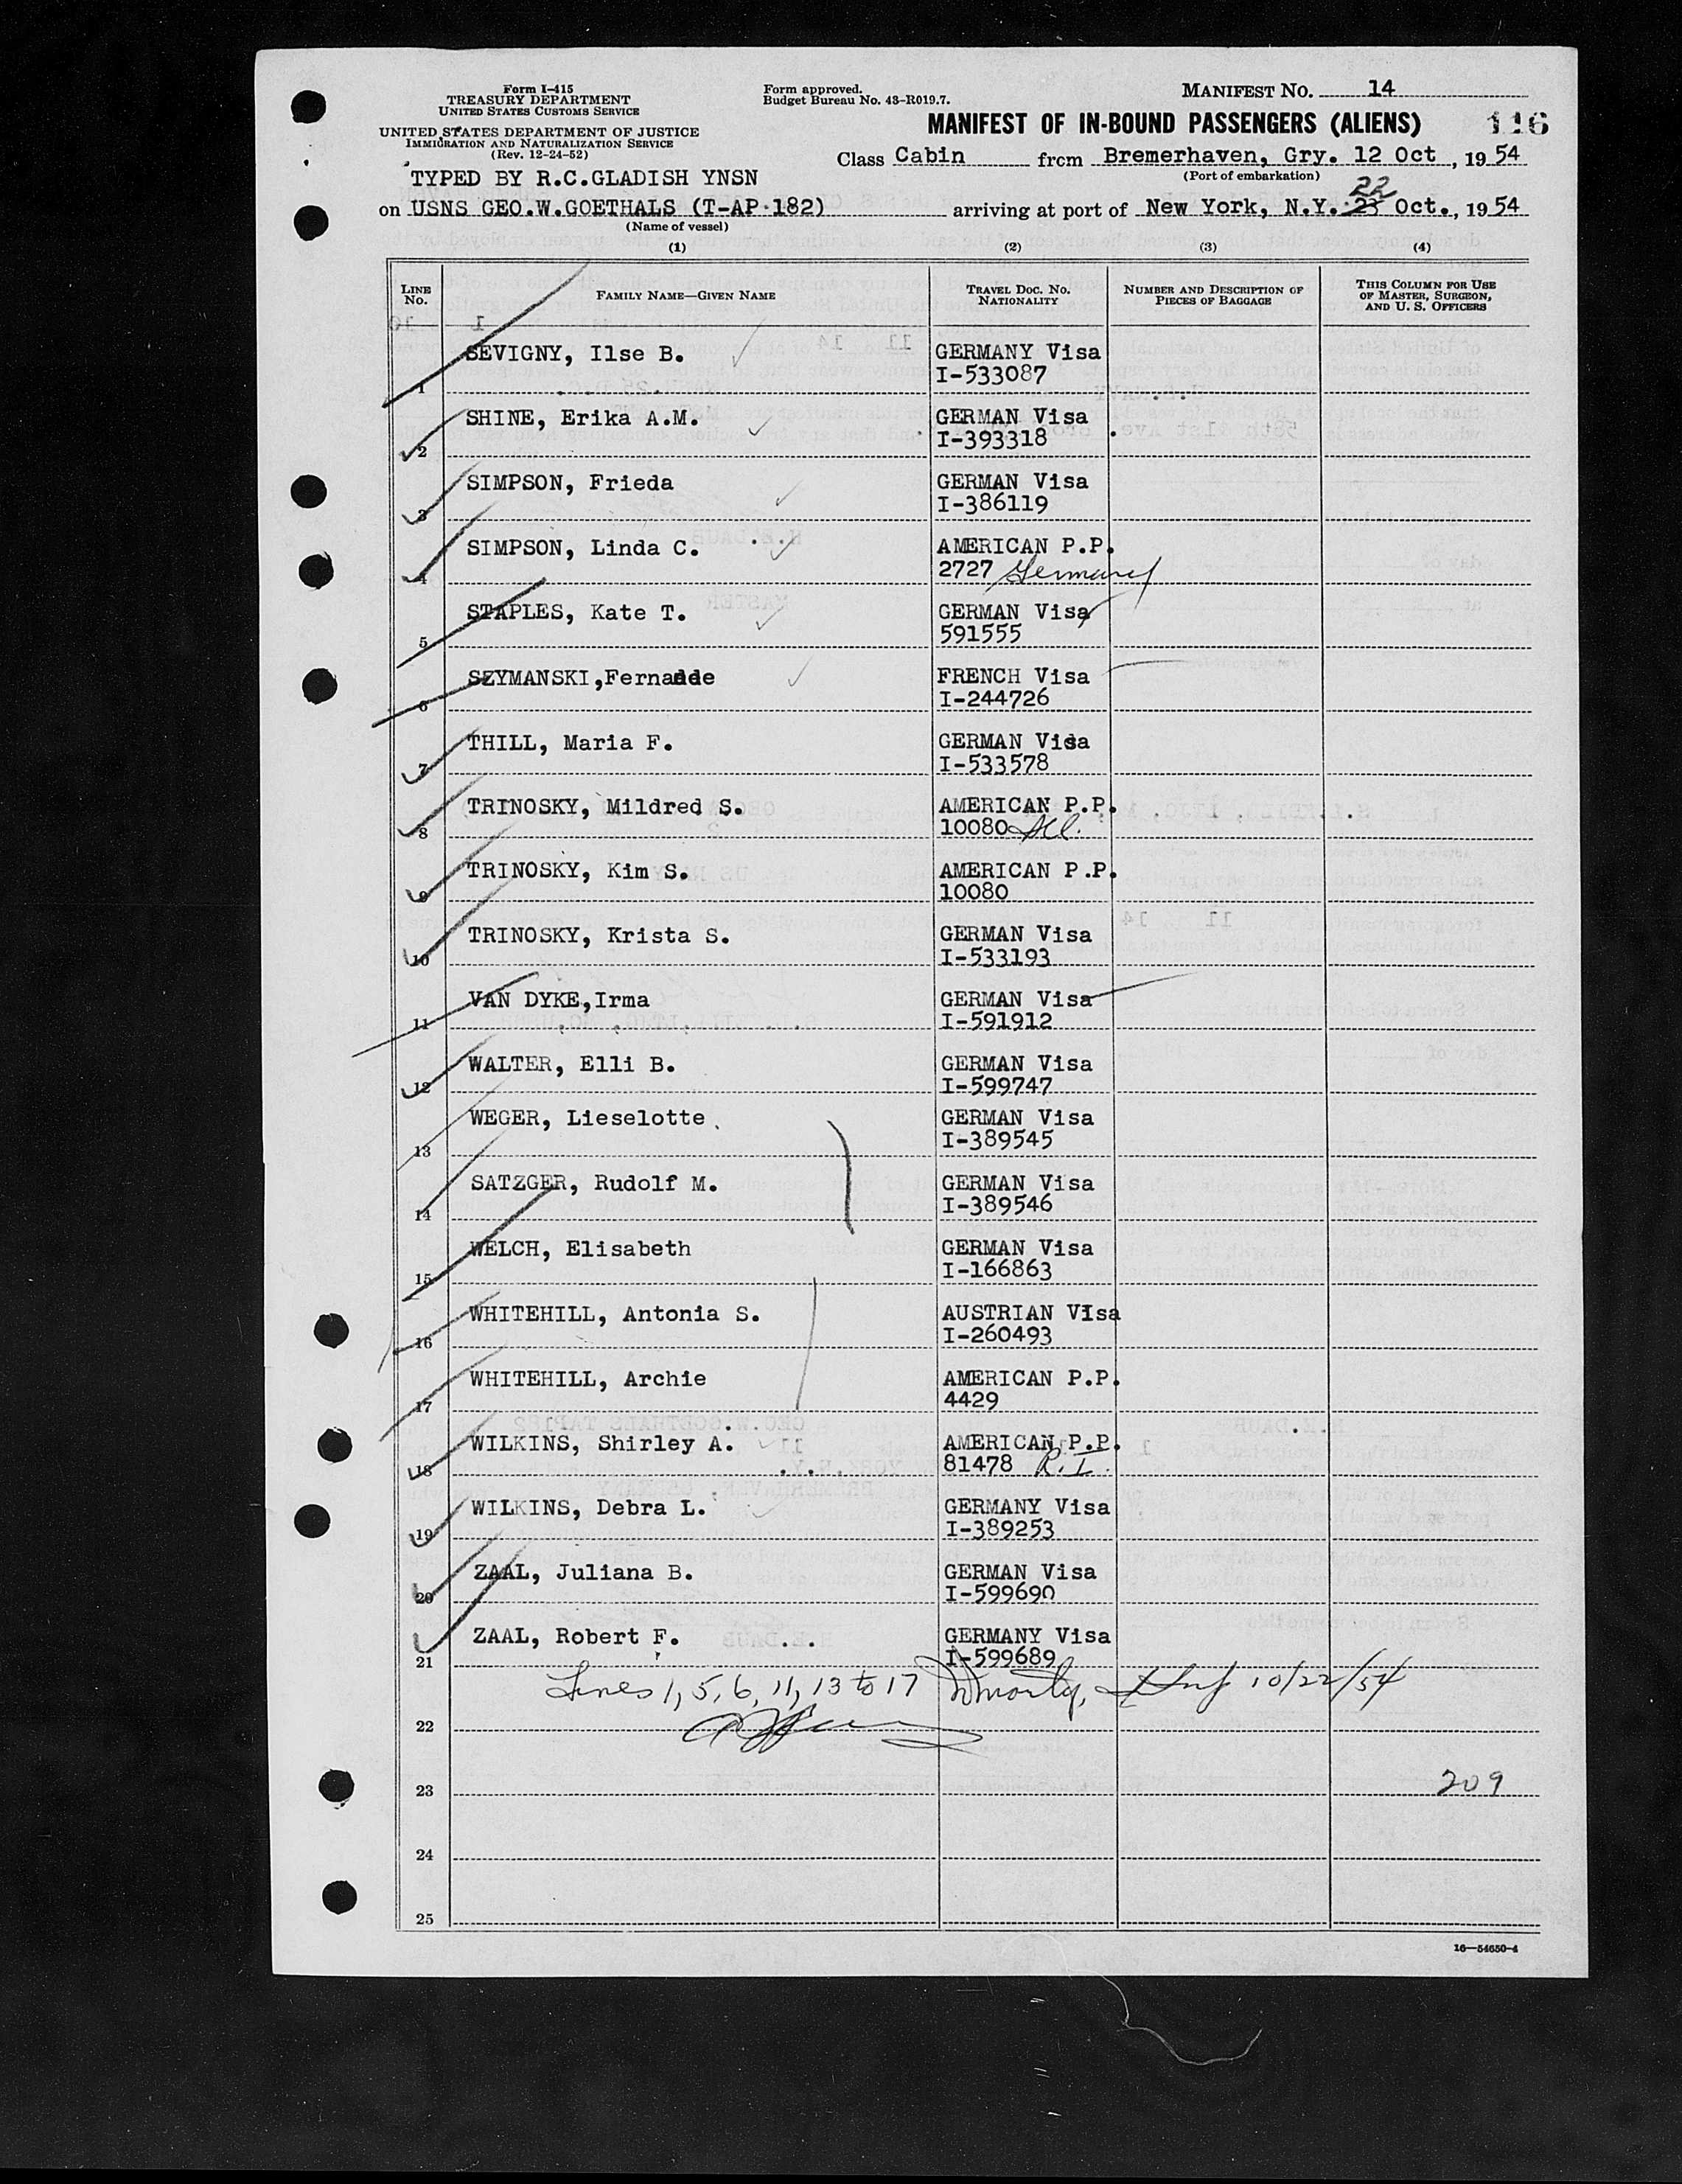 Form I-415
TREASURY DEPARTMENT
UNITED STATES CUSTOMS SERVICE
UNITED STATES DEPARTMENT OF JUSTICE
IMMIGRATION AND NATURALIZATION SERVICE
(Rev. 12-24-52)
Form approved.
Budget Bureau No. 43-R019.7.
MANIFEST NO. 14
MANIFEST OF IN-BOUND PASSENGERS (ALIENS) 116
Class Cabin from Bremerhaven, Gry. 12 Oct , 19 54
(Port of embarkation)
TYPED BY R.C.GLADISH YNSN
22
on USNS GEO.W.GOETHALS (T-AP-182) arriving at port of New York, N.Y. 23 Oct., 19 54
(Name of vessel)
(1) (2) (3) (4)
LINE No. FAMILY NAME—GIVEN NAME TRAVEL DOC. NO. NATIONALITY NUMBER AND DESCRIPTION OF PIECES OF BAGGAGE THIS COLUMN FOR USE OF MASTER, SURGEON, AND U. S. OFFICERS
SEVIGNY, Ilse B. GERMANY Visa
1 I-533087
SHINE, Erika A.M. GERMAN Visa
2 I-393318
SIMPSON, Frieda GERMAN Visa
3 I-386119
SIMPSON, Linda C. AMERICAN P.P.
4 2727 Germany
STAPLES, Kate T. GERMAN Visa
5 591555
SZYMANSKI,Fernande FRENCH Visa
6 I-244726
THILL, Maria F. GERMAN Visa
7 I-533578
TRINOSKY, Mildred S. AMERICAN P.P.
8 10080
TRINOSKY, Kim S. AMERICAN P.P.
9 10080
TRINOSKY, Krista S. GERMAN Visa
10 I-533193
VAN DYKE,Irma GERMAN Visa
11 I-591912
WALTER, Elli B. GERMAN Visa
12 I-599747
WEGER, Lieselotte GERMAN Visa
13 I-389545
SATZGER, Rudolf M. GERMAN Visa
14 I-389546
WELCH, Elisabeth GERMAN Visa
15 I-166863
WHITEHILL, Antonia S. AUSTRIAN VIsa
16 I-260493
WHITEHILL, Archie AMERICAN P.P.
17 4429
WILKINS, Shirley A. AMERICAN P.P.
18 81478 R.I.
WILKINS, Debra L. GERMANY Visa
19 I-389253
ZAAL, Juliana B. GERMAN Visa
20 I-599690
ZAAL, Robert F. GERMANY Visa
21 I-599689
Lines 1, 5, 6, 11, 13 to 17 10/22/54
22
23 209
24
25
16—54650-4